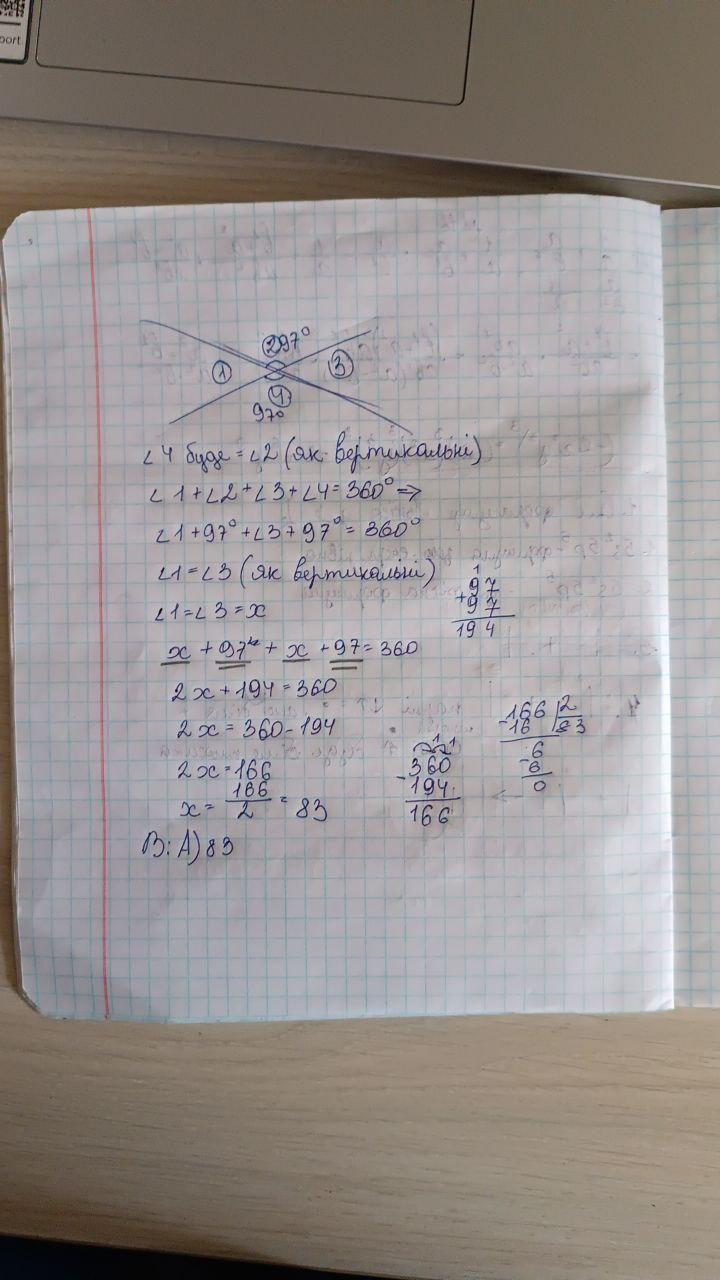 port
② 97°
① ③
④
97°
∠4 буде = ∠2 (як вертикальні)
∠1+∠2+∠3+∠4=360° ⇒
∠1+97°+∠3+97°=360°
∠1=∠3 (як вертикальні)
∠1=∠3=x
1
97
+97
194
x + 97 + x + 97 = 360
2x+194=360
2x=360-194
2x=166
x= 166/2 = 83
360
-194
166
166 2
-16 83
6
-6
0
В: А) 83